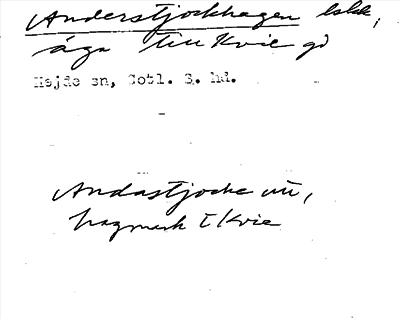 Anderstjockhagen lskr,
äga till Kvie gd
Hejde sn, Gotl. S. hd.
Andastjocke
hagmark i Kvie